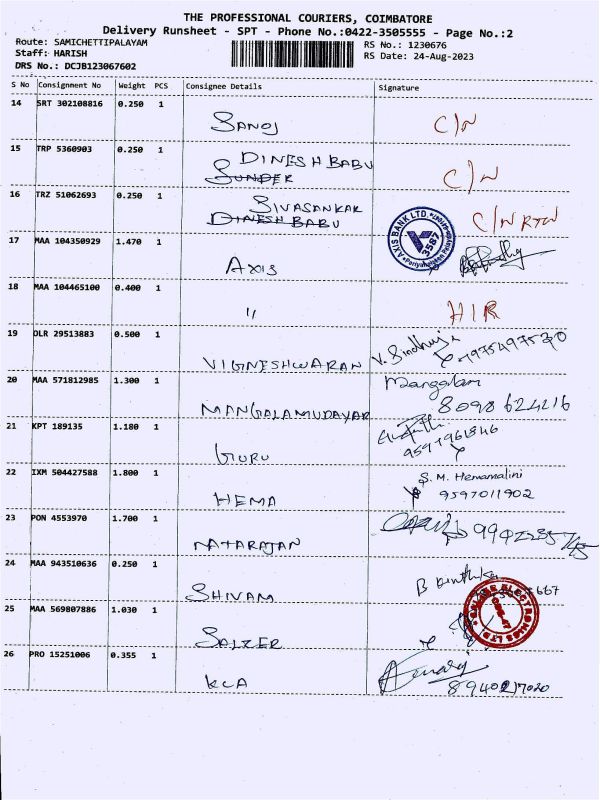 THE PROFESSIONAL COURIERS, COIMBATORE
Delivery Runsheet - SPT - Phone No.:0422-3505555 - Page No.:2
Route: SAMICHETTIPALAYAM RS No.: 1230676
Staff: HARISH RS Date: 24-Aug-2023
DRS No.: DCJB123067602
S No Consignment No Weight PCS Consignee Details Signature
14 SRT 302108816 0.250 1
SANOJ C/N
15 TRP 5360903 0.250 1
DINESH BABU
SUNDER C/N
16 TRZ 51062693 0.250 1
SIVASANKAR
DINESH BABU C/N RTN
AXIS BANK LTD.
3587
17 MAA 104350929 1.470 1
AXIS
18 MAA 104465100 0.400 1
" HIR
19 DLR 29513883 0.500 1
VIGNESHWARAN V. Sindhuja
20 MAA 571812985 1.300 1
Mangalam
MANGALAMUDAYAR 8098624216
21 KPT 189135 1.180 1
GURU
22 IXM 504427588 1.800 1
S.M. Hemamalini
HEMA 9597011902
23 PON 4553970 1.700 1
NATARAJAN
24 MAA 943510636 0.250 1
SHIVAM
25 MAA 569807886 1.030 1
ELECTRONICS LTD
SALZER
26 PRO 15251006 0.355 1
KCA 8940217020